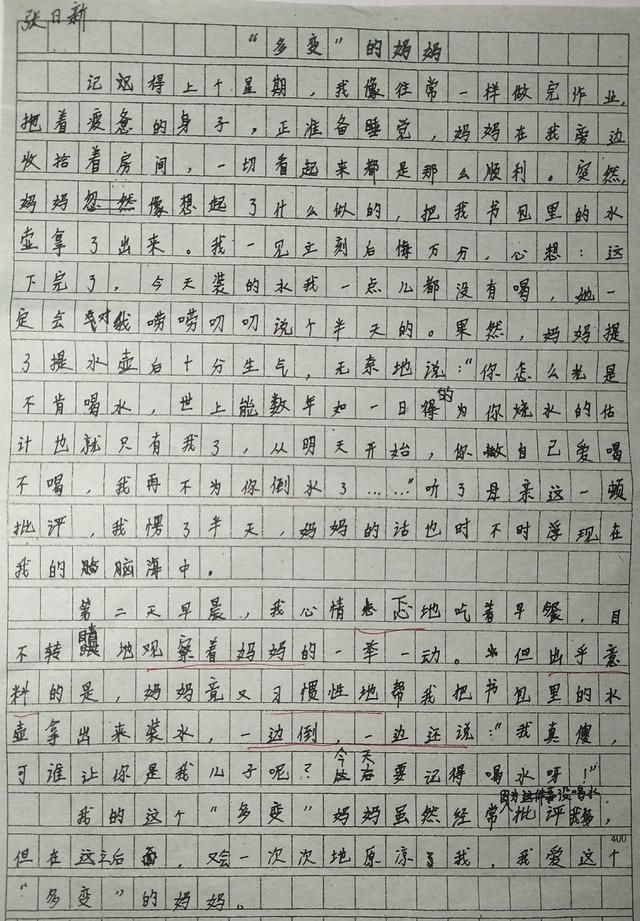 张日新
“多变”的妈妈
记得上个星期，我像往常一样做完作业，
抱着疲惫的身子，正准备睡觉，妈妈在我旁边
收拾着房间，一切看起来都是那么顺利。突然，
妈妈忽然像想起了什么似的，把我书包里的水
壶拿了出来。我一见立刻后悔万分，心想：这
下完了，今天装的水我一点儿都没有喝，她一
定会对我唠唠叨叨说个半天的。果然，妈妈提
了提水壶后十分生气，无奈地说：“你怎么老是
不肯喝水，世上能数年如一日得的为你烧水的估
计也就只有我了，从明天开始，你自己爱喝
不喝，我再不为你倒水了……”听了母亲这一顿
批评，我愣了半天，妈妈的话也时不时浮现在
我的脑海中。
第二天早晨，我心情忐忑地吃着早餐，目
不转睛地观察着妈妈的一举一动。但出乎意
料的是，妈妈竟又习惯性地帮我把书包里的水
壶拿出来装水，一边倒，一边还说：“我真傻，
可谁让你是我儿子呢？今天要记得喝水呀！”
因为没喝水
我的这个“多变”妈妈虽然经常批评我，
400
但在这之后，又会一次次地原凉了我，我爱这个
“多变”的妈妈。